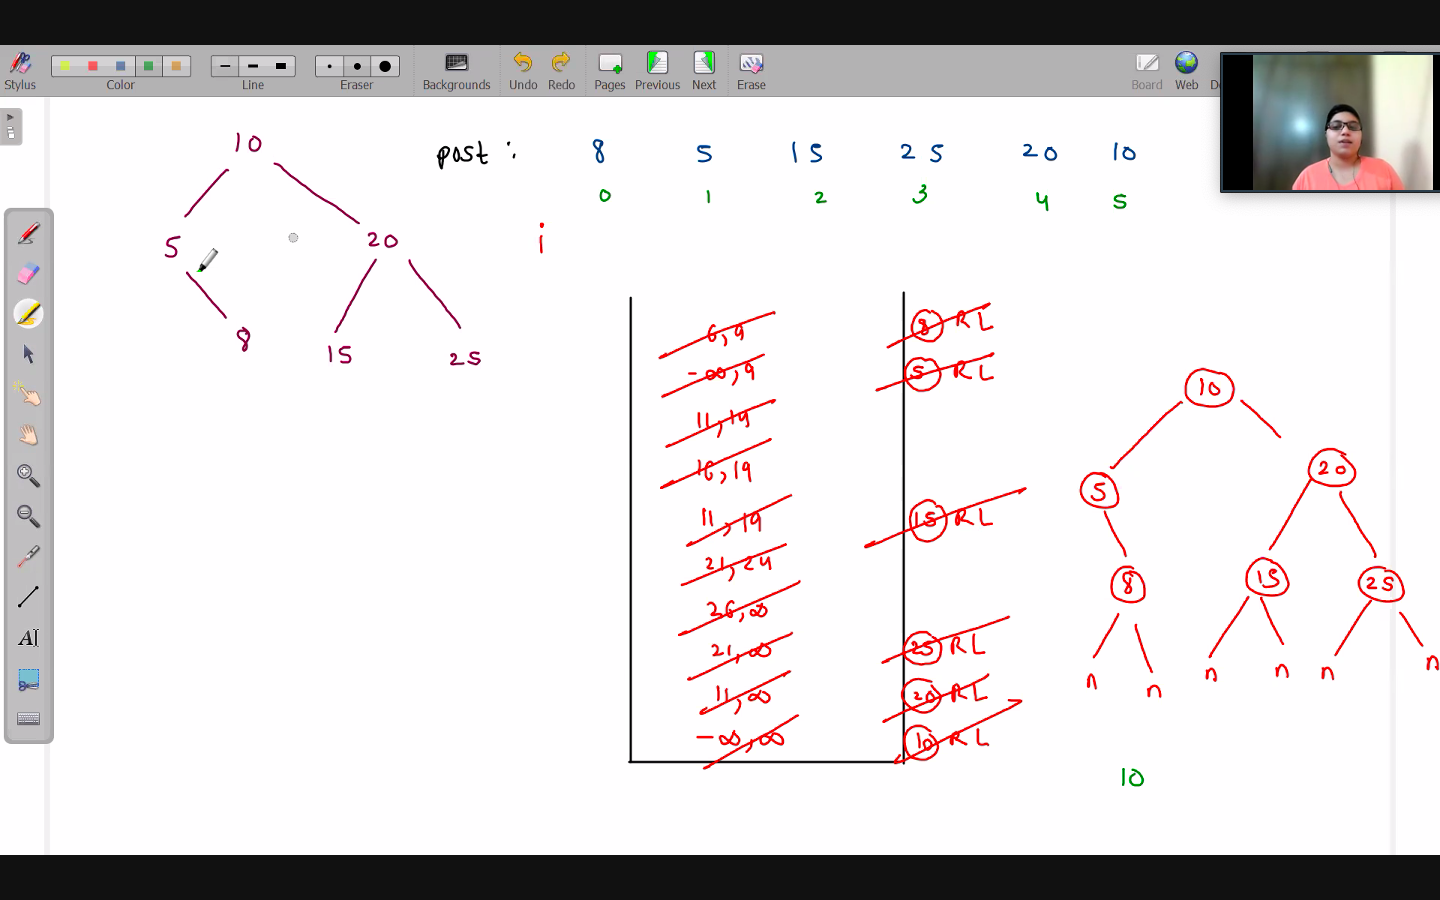 Stylus Color Line Eraser Backgrounds Undo Redo Pages Previous Next Erase Board Web
10
5 20
8 15 25
post : 8 5 15 25 20 10
0 1 2 3 4 5
i
6, 9 8 R L
-∞, 9 5 R L
11, 19
16, 19
11, 19 15 R L
21, 24
26, ∞
21, ∞ 25 R L
11, ∞ 20 R L
-∞, ∞ 10 R L
10
5 20
8 15 25
n n n n n n
10
AI